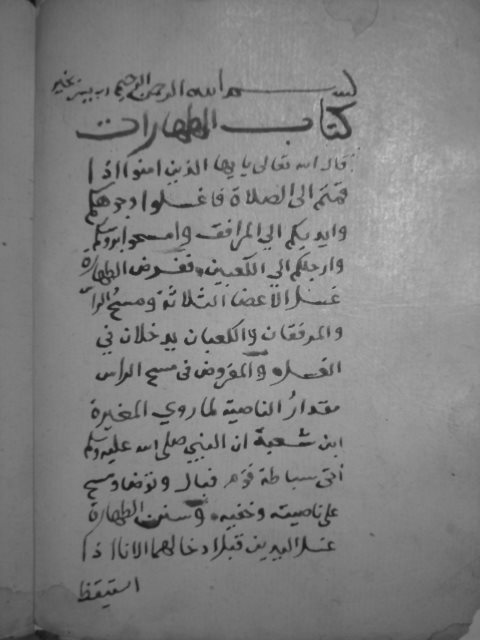 بسم الله الرحمن الرحيم رب يسر بخير
كتاب الطهارات
قال الله تعالى يا يها الذين امنوا اذا
قمتم الى الصلاة فاغسلوا وجوهكم
وايديكم الي المرافق وامسحوا بروسكم
وارجلكم الي الكعبين ففرض الطهارة
غسل الاعضا الثلاثة ومسح الراس
والمرفقان والكعبان يدخلان في
الغسل والمفروض في مسح الراس
مقدار الناصية لما روي المغيرة
ابن شعبة ان النبي صلى الله عليه وسلم
اتى سباطة قوم فبال وتوضا ومسح
على ناصيته وخفيه وسنن الطهارة
غسل اليدين قبل ادخالهما الانا اذا
استيقظ